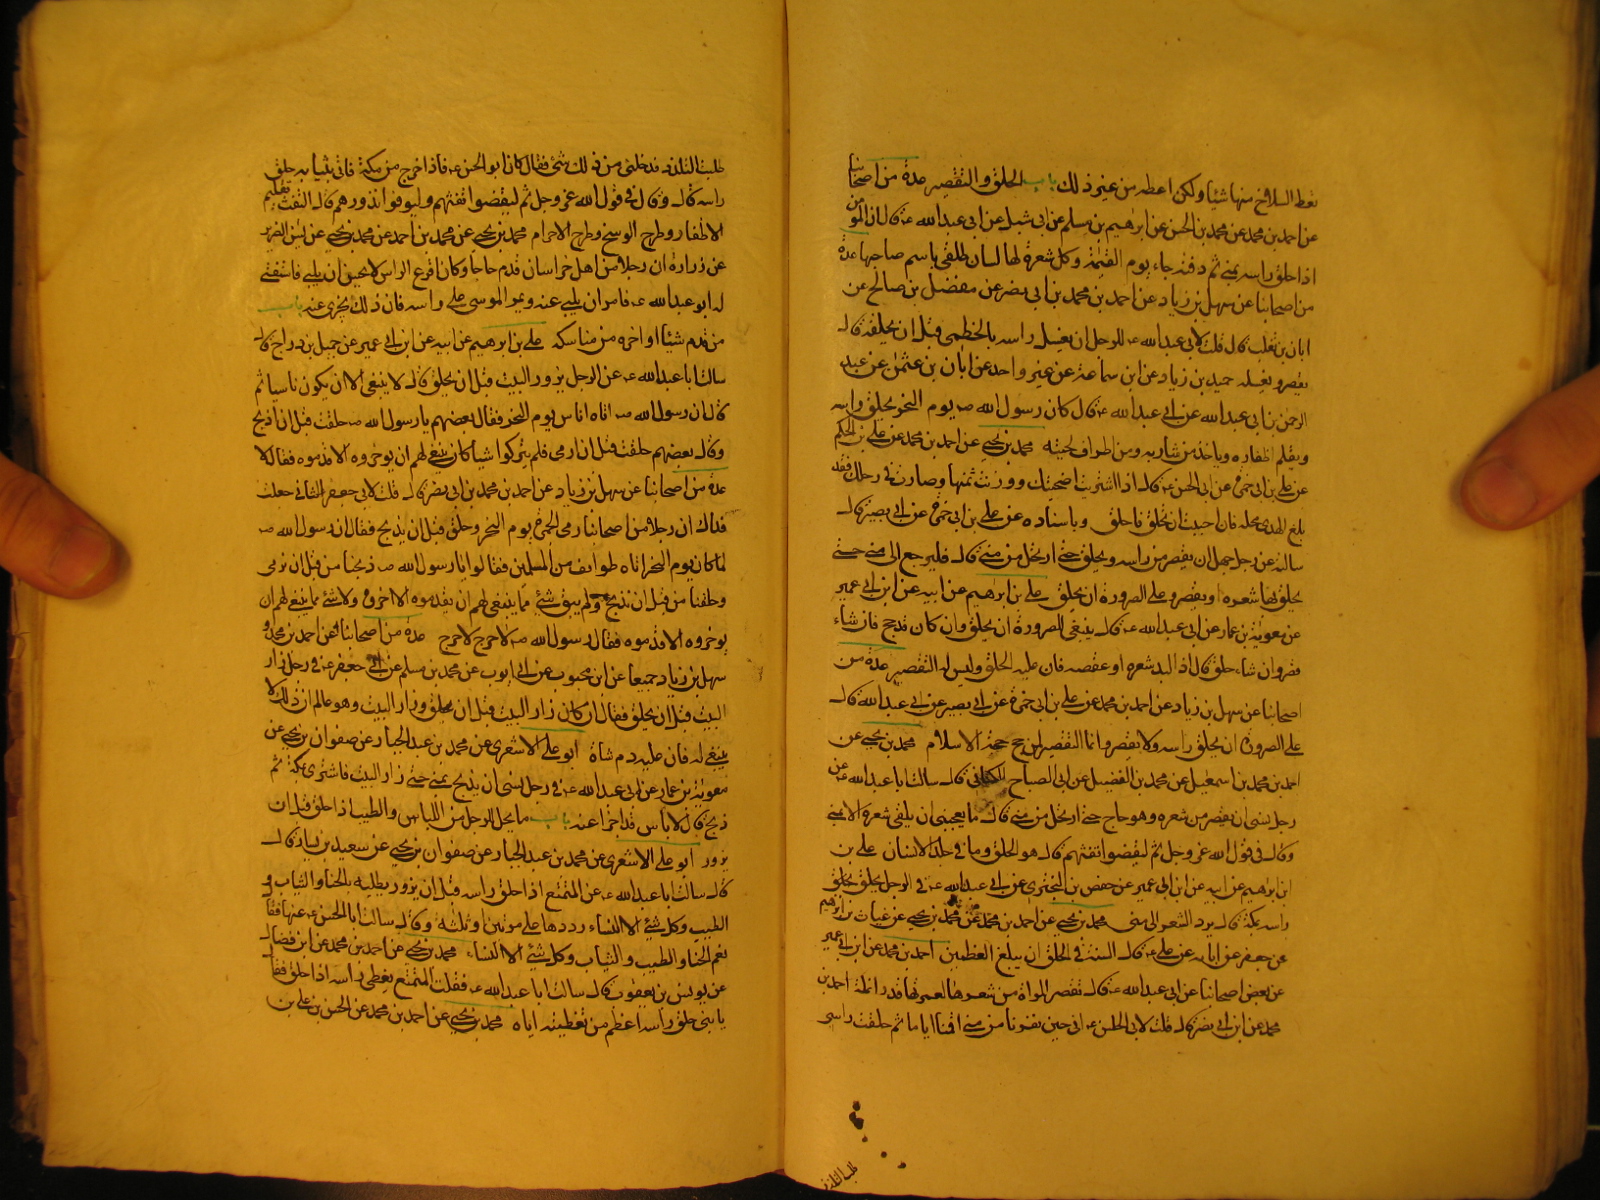 تعط السلاخ منها شيئا ولكن اعطه من غير ذلك باب الحلق والتقصير عدة من اصحابنا
عن احمد بن محمد عن محمد بن الحسن عن ابرهيم بن مسلم عن ابي شبل عن ابي عبد الله ع قال ان المومن
اذا حلق راسه بمنى ثم دفنه جاء يوم القيمة وكل شعرة لها لسان طلق تلبي باسم صاحبها عدة
من اصحابنا عن سهل بن زياد عن احمد بن محمد بن ابي نصر عن مفضل بن صالح عن
ابان بن تغلب قال قلت لابي عبد الله ع للرجل ان يغسل راسه بالخطمي قبل ان يحلقه قال
يقصر ويغسله حميد بن زياد عن ابن سماعة عن غير واحد عن ابان بن عثمن عن عبد
الرحمن بن ابي عبد الله عن ابي عبد الله ع قال كان رسول الله ص يوم النحر يحلق راسه
ويقلم اظفاره وياخذ من شاربه ومن اطراف لحيته محمد بن يحيى عن احمد بن محمد عن علي بن الحكم
عن علي بن ابي حمزة عن ابي الحسن ع قال اذا اشتريت اضحيتك ووزنت ثمنها وصارت في رحلك فقد
بلغ الهدي محله فان احببت ان تحلق فاحلق وباسناده عن علي بن ابي حمزة عن ابي بصير قال
سالته عن رجل جهل ان يقصر من راسه ويحلق حتى ارتحل من منى قال فليرجع الى منى حتى
يحلق بها شعره او يقصر وعلى الصرورة ان يحلق علي بن ابرهيم عن ابيه عن ابن ابي عمير
عن معوية بن عمار عن ابي عبد الله ع قال ينبغي للصرورة ان يحلق وان كان قد حج فان شاء
قصر وان شاء حلق قال اذا لبد شعره او عقصه فان عليه الحلق وليس له التقصير عدة من
اصحابنا عن سهل بن زياد عن احمد بن محمد عن علي بن ابي حمزة عن ابي بصير عن ابي عبد الله قال
على الصرورة ان يحلق راسه ولا يقصر وانما التقصير لمن حج حجة الاسلام محمد بن يحيى عن
احمد بن محمد بن اسمعيل عن محمد بن الفضيل عن ابي الصباح الكناني قال سالت ابا عبد الله ع عن
رجل نسي ان يقصر من شعره وهو حاج حتى ارتحل من منى قال ما يعجبني ان يلقي شعره الا بمنى
وقال في قول الله عز وجل ثم ليقضوا تفثهم قال هو الحلق وما في جلد الانسان علي بن
ابرهيم عن ابيه عن ابن ابي عمير عن حفص بن البختري عن ابي عبد الله ع في الرجل يحلق
راسه بمكة قال يرد الشعر الى منى محمد بن يحيى عن احمد بن محمد عن محمد بن يحيى عن غياث بن ابرهيم
عن جعفر عن ابائه عن علي ع قال السنة في الحلق ان يبلغ العظمين احمد بن محمد عن ابن ابي عمير
عن بعض اصحابنا عن ابي عبد الله ع قال تقصر المراة من شعرها لعمرتها قدر انملة احمد بن
محمد عن ابن ابي نصر قال قلت لابي الحسن ع انا حين نفرنا من منى اقمنا اياما ثم حلقت راسي
طلب التلذذ
طلب التلذذ فدخلني من ذلك شئ فقال كان ابو الحسن ع فاذا خرج من مكة فاتي بثيابه حلق
راسه قال وقال في قول الله عز وجل ثم ليقضوا تفثهم وليوفوا نذورهم قال التفث تقليم
الاظفار وطرح الوسخ وطرح الاحرام محمد بن يحيى عن محمد بن احمد عن محمد بن يحيى عن يس الضرير
عن زرارة ان رجلا من اهل خراسان قدم حاجا وكان اقرع الراس لا يحسن ان يلبي فاستفتي
له ابو عبد الله ع فامر ان يلبى عنه ويمر الموسى على راسه فان ذلك يجزي عنه باب
من قدم شيئا او اخره من مناسكه علي بن ابرهيم عن ابيه عن ابن ابي عمير عن جميل بن دراج قال
سالت ابا عبد الله ع عن الرجل يزور البيت قبل ان يحلق قال لا ينبغي الا ان يكون ناسيا ثم
قال ان رسول الله ص اتاه اناس يوم النحر فقال بعضهم يا رسول الله ص حلقت قبل ان اذبح
وقال بعضهم حلقت قبل ان ارمي فلم يتركوا شيئا كان ينبغي لهم ان يوخروه الا قدموه فقال لا
عدة من اصحابنا عن سهل بن زياد عن احمد بن محمد بن ابي نصر قال قلت لابي جعفر الثاني جعلت
فداك ان رجلا من اصحابنا رمى الجمرة يوم النحر وحلق قبل ان يذبح فقال ان رسول الله ص
لما كان يوم النحر اتاه طوائف من المسلمين فقالوا يا رسول الله ص ذبحنا من قبل ان نرمي
وحلقنا من قبل ان نذبح ولم يبق شئ مما ينبغي لهم ان يقدموه الا اخروه ولا شئ مما ينبغي لهم ان
يوخروه الا قدموه فقال رسول الله ص لا حرج لا حرج عدة من اصحابنا عن احمد بن محمد و
سهل بن زياد جميعا عن ابن محبوب عن ابي ايوب عن محمد بن مسلم عن ابي جعفر ع في رجل زار
البيت قبل ان يحلق فقال ان كان زار البيت قبل ان يحلق وزار البيت وهو عالم ان ذلك لا
ينبغي له فان عليه دم شاة ابو علي الاشعري عن محمد بن عبد الجبار عن صفوان بن يحيى عن
معوية بن عمار عن ابي عبد الله ع في رجل نسي ان يذبح بمنى حتى زار البيت فاشترى بمكة ثم
ذبح قال لا باس قد اجزا عنه باب ما يحل للرجل من اللباس والطيب اذا حلق قبل ان
يزور ابو علي الاشعري عن محمد بن عبد الجبار عن صفوان بن يحيى عن سعيد بن يسار قال
قال سالت ابا عبد الله ع عن المتمتع اذا حلق راسه قبل ان يزور يطليه بالحنا والثياب و
الطيب وكل شئ الا النساء رددها علي مرتين او ثلثة وقال سالت ابا الحسن ع عنها فقال
نعم الحنا والطيب والثياب وكل شئ الا النساء محمد بن يحيى عن احمد بن محمد عن ابن فضال
عن يونس بن يعقوب قال سالت ابا عبد الله ع فقلت المتمتع يغطي راسه اذا حلق فقال
يا بني حلق راسه اعظم من تغطيته اياه محمد بن يحيى عن احمد بن محمد عن الحسن بن علي بن